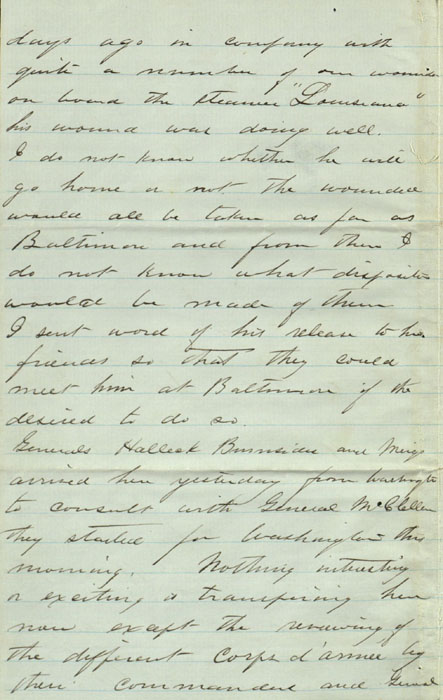 days ago in company with
quite a number of our wounde
on board the steamer "Louisiana"
his wound was doing well.
I do not know whether he will
go home or not the wounded
would all be taken as far as
Baltimore and from then I
do not know what dispositi
would be made of them
I sent word of his release to his
friends so that they could
meet him at Baltimore if the
desired to do so.
Generals Halleck Burnside and Meigs
arrived here yesterday from Washingto
to consult with General McClellan
they started for Washington this
morning. Nothing interesting
or exciting is transpiring here
now except the reviewing of
the different Corps d'armee by
their commanders and